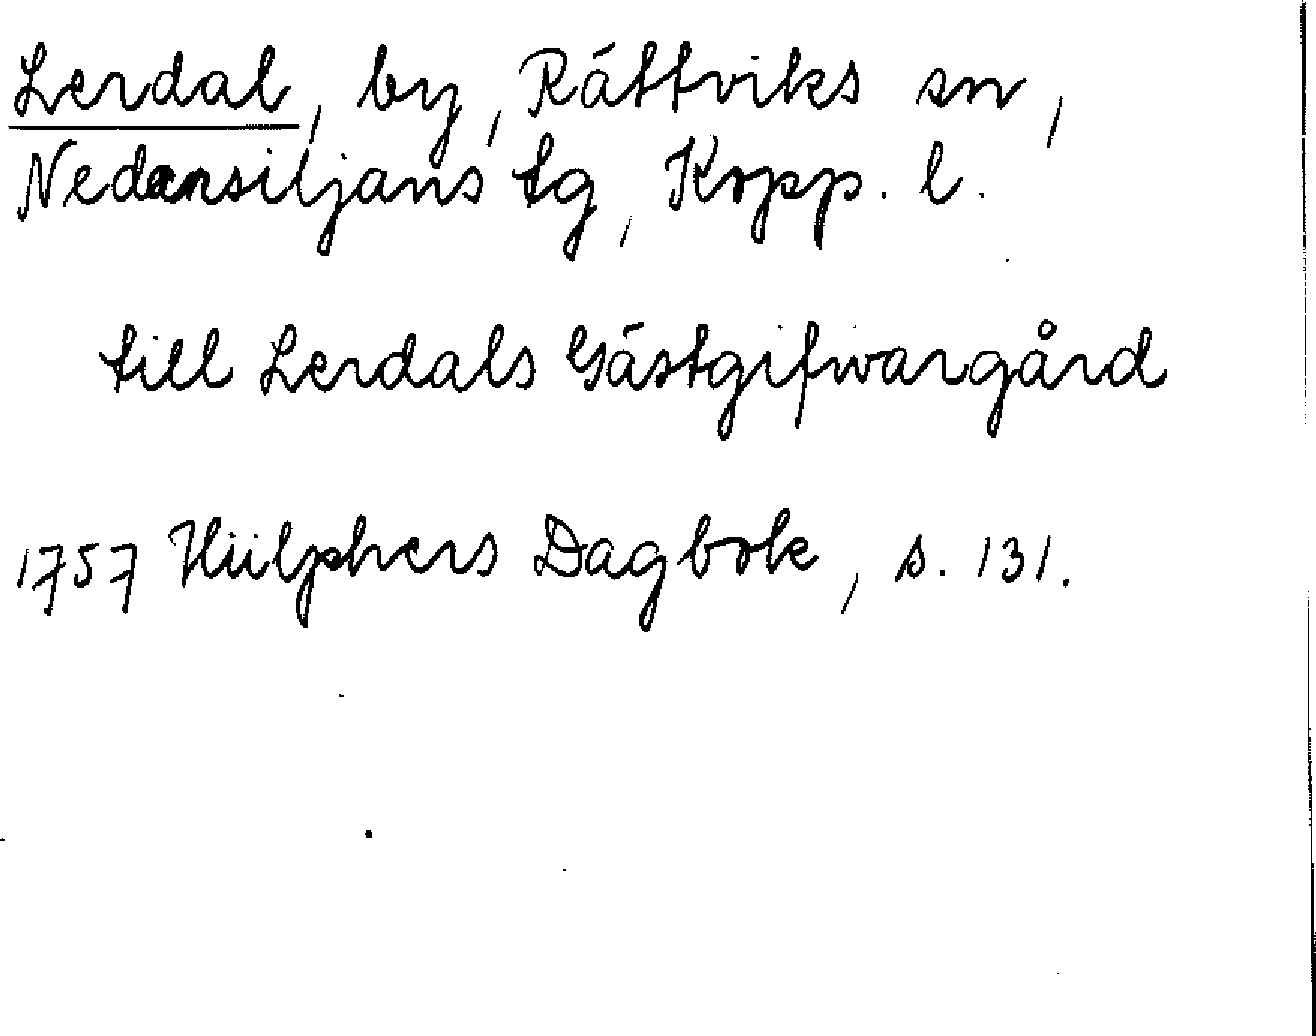 Lerdal, by, Rättviks sn,
Nedansiljans tg, Kopp. l.
till Lerdals Gästgifwargård
1757 Hülphers Dagbok, s. 131.